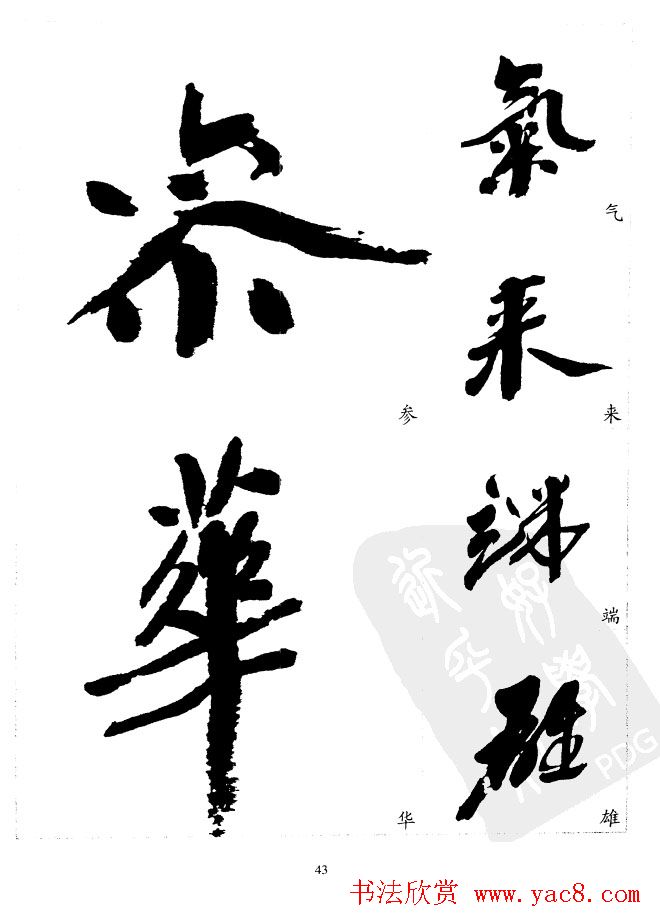 氣
气
来
来
端
端
雄
雄
參
参
華
华
PDG
43
书法欣赏 www.yac8.com